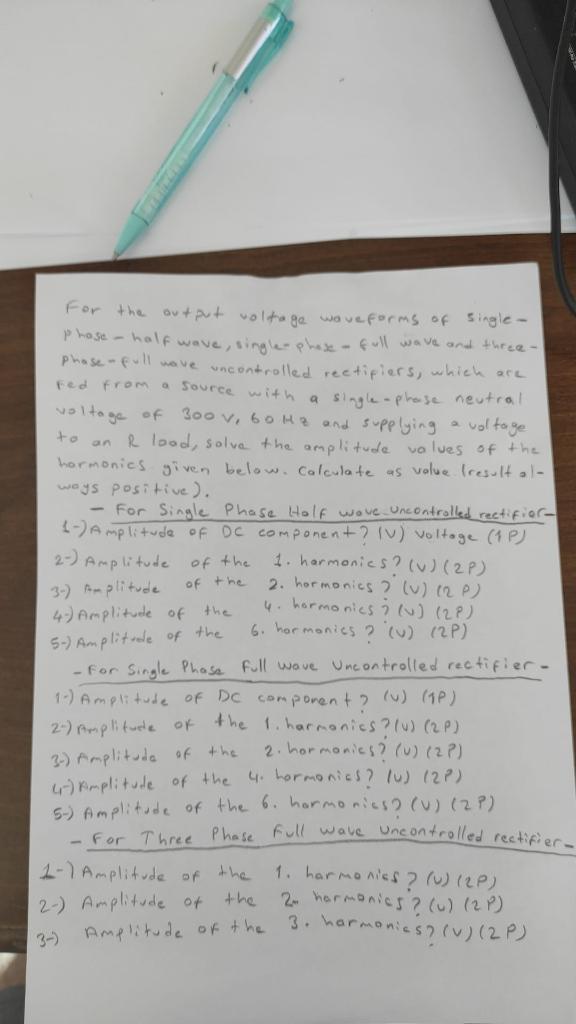 For the output voltage waveforms of single-
phase-half wave, single-phase-full wave and three-
phase-full wave uncontrolled rectifiers, which are
fed from a source with a single-phase neutral
voltage of 300 V, 60 Hz and supplying a voltage
to an R load, solve the amplitude values of the
harmonics given below. Calculate as value (result al-
ways positive).
- For Single Phase Half wave Uncontrolled rectifier-
1-) Amplitude of DC component? (V) voltage (1P)
2-) Amplitude of the 1. harmonics? (V) (2P)
3-) Amplitude of the 2. harmonics? (V) (2P)
4-) Amplitude of the 4. harmonics? (V) (2P)
5-) Amplitude of the 6. harmonics? (V) (2P)
- For Single Phase Full Wave Uncontrolled rectifier-
1-) Amplitude of DC component? (V) (1P)
2-) Amplitude of the 1. harmonics? (V) (2P)
3-) Amplitude of the 2. harmonics? (V) (2P)
4-) Amplitude of the 4. harmonics? (V) (2P)
5-) Amplitude of the 6. harmonics? (V) (2P)
- For Three Phase Full Wave Uncontrolled rectifier-
1-) Amplitude of the 1. harmonics? (V) (2P)
2-) Amplitude of the 2. harmonics? (V) (2P)
3-) Amplitude of the 3. harmonics? (V) (2P)